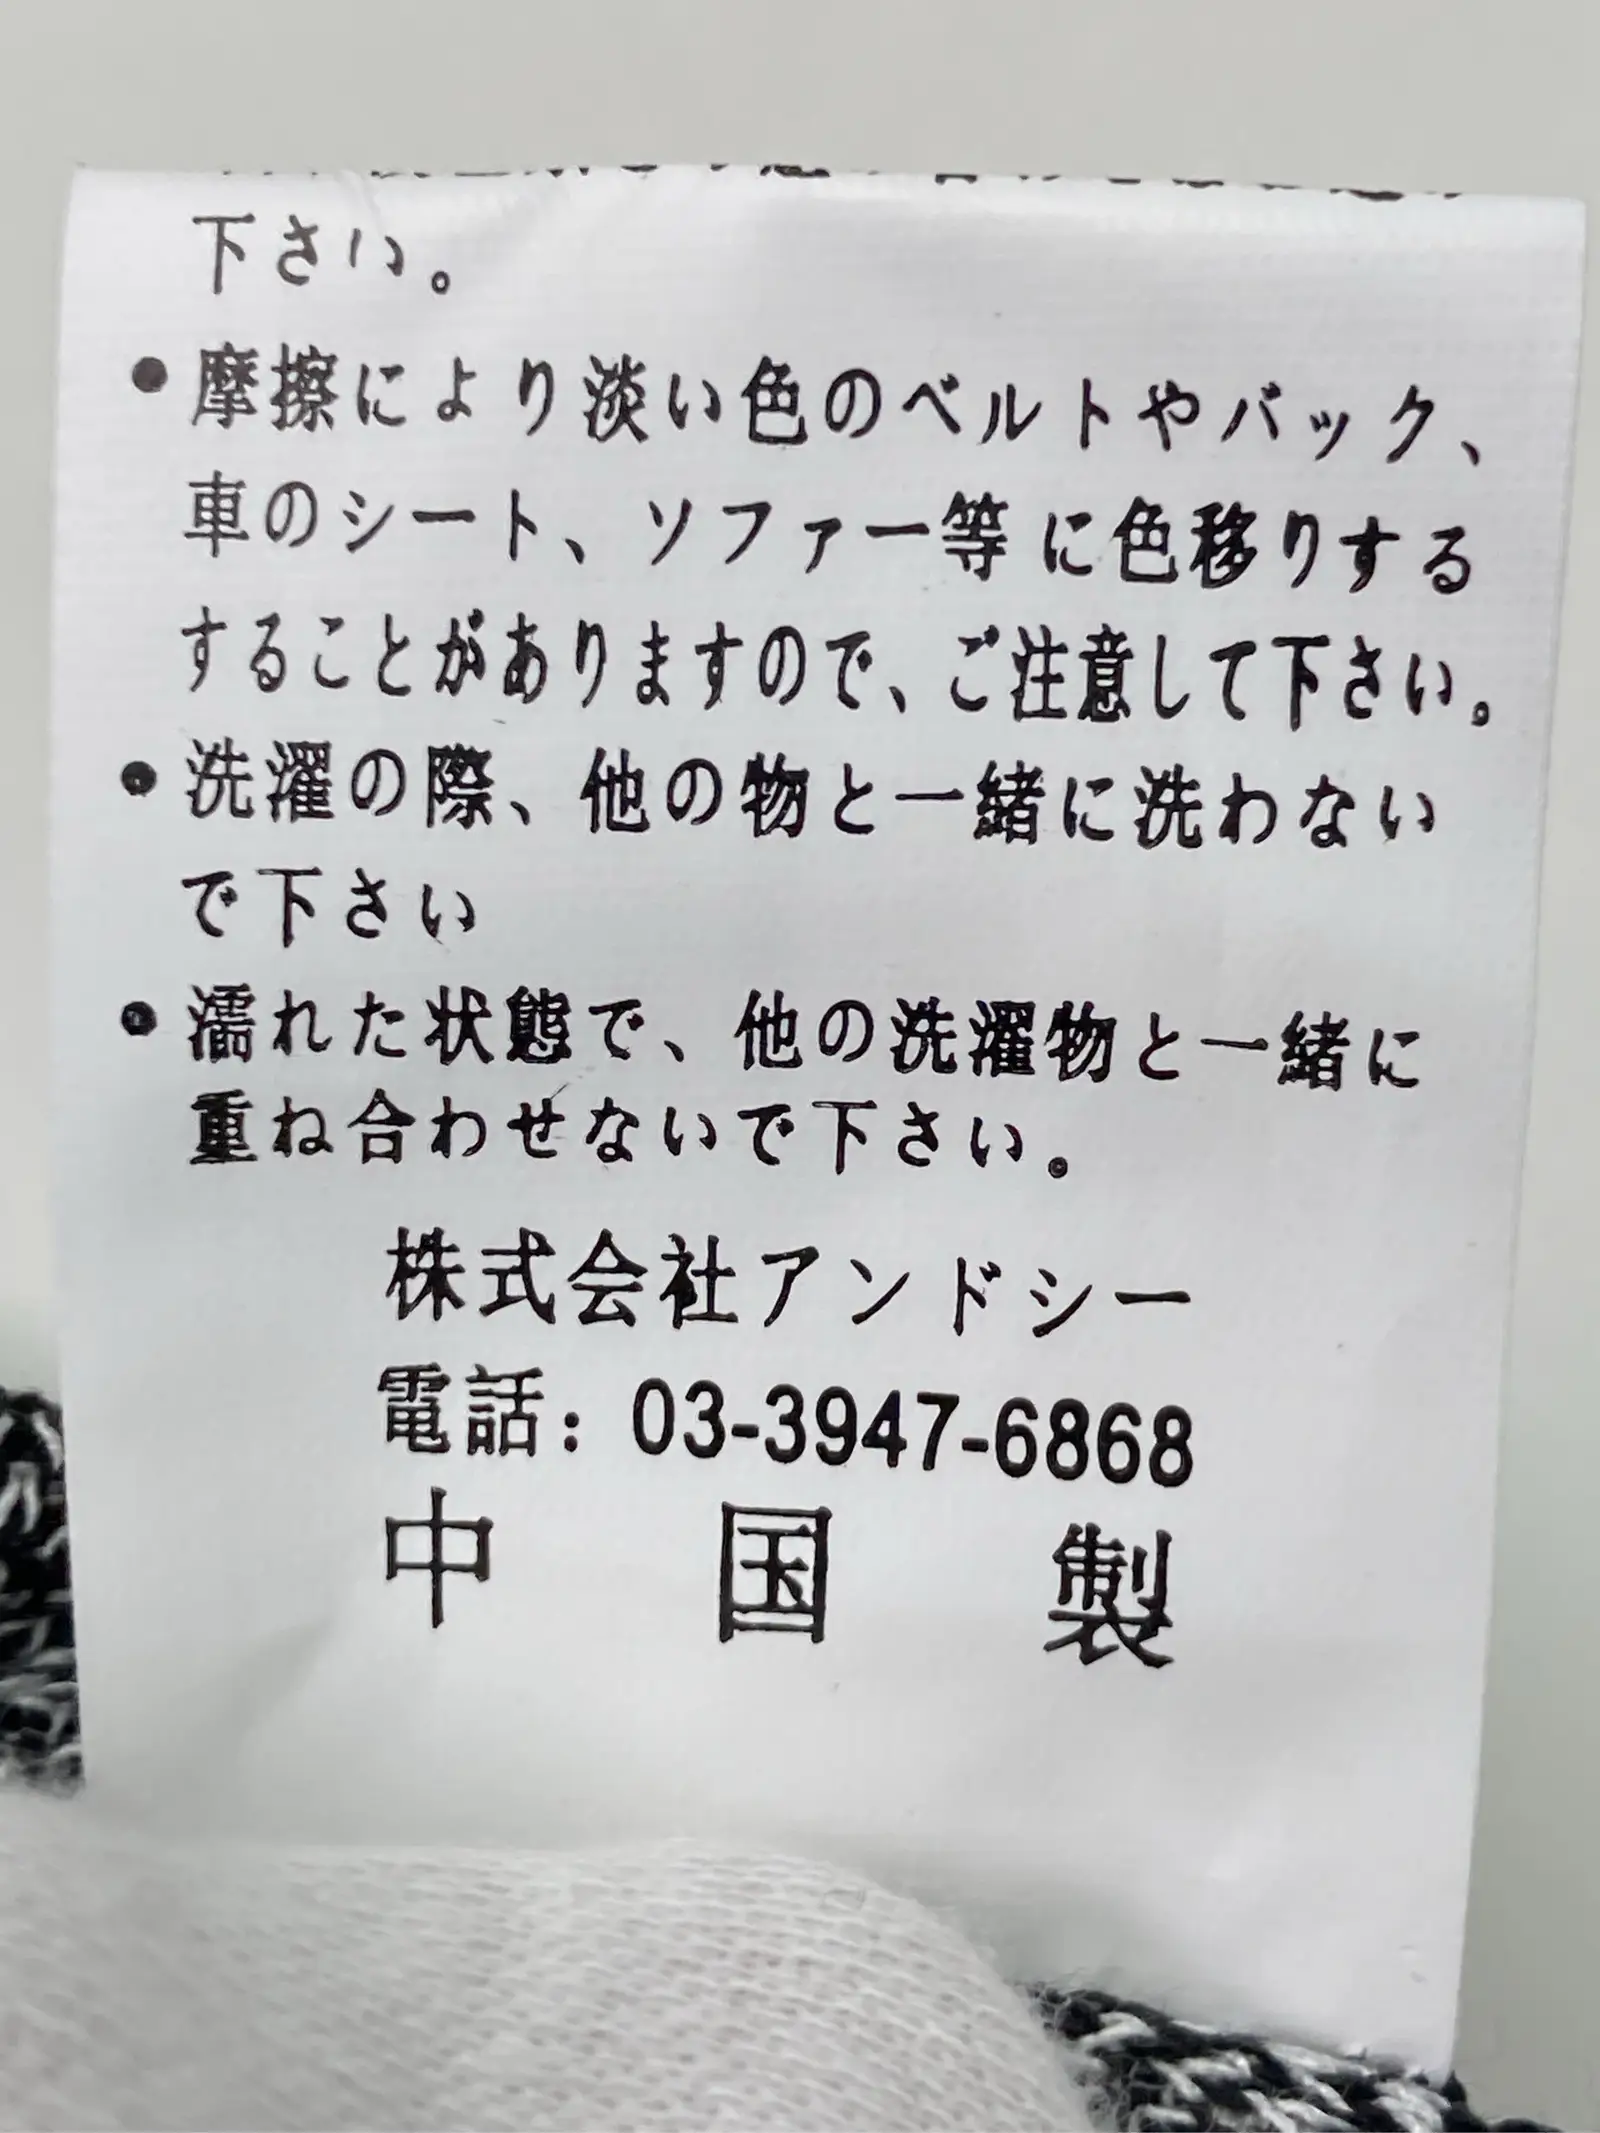 下さい。
●摩擦により淡い色のベルトやバック、
車のシート、ソファー等に色移りする
することがありますので、ご注意して下さい。
●洗濯の際、他の物と一緒に洗わない
で下さい
●濡れた状態で、他の洗濯物と一緒に
重ね合わせないで下さい。
株式会社アンドシー
電話：03-3947-6868
中国製